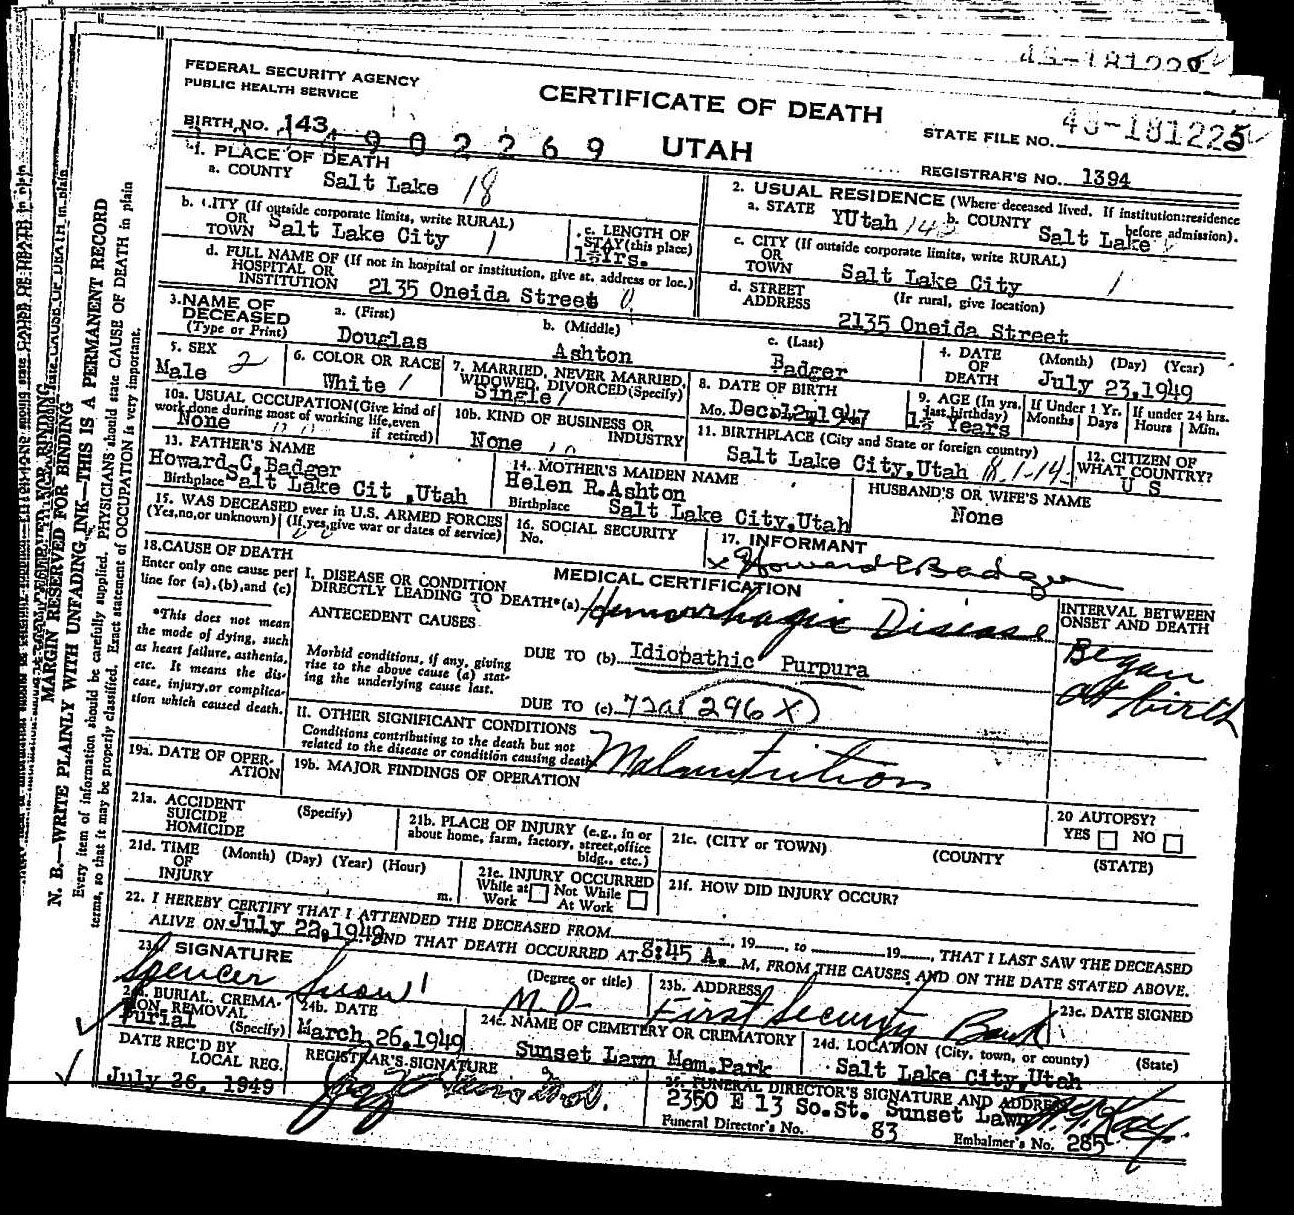 FEDERAL SECURITY AGENCY
PUBLIC HEALTH SERVICE
CERTIFICATE OF DEATH
STATE FILE NO. 
BIRTH NO. 143 902269 UTAH
REGISTRAR'S NO. 1394
1. PLACE OF DEATH
a. COUNTY Salt Lake 18
b. CITY (If outside corporate limits, write RURAL)
OR
TOWN Salt Lake City 1
c. LENGTH OF
STAY (this place)
1½Yrs.
d. FULL NAME OF (If not in hospital or institution, give st. address or loc.)
HOSPITAL OR
INSTITUTION 2135 Oneida Street 0
2. USUAL RESIDENCE (Where deceased lived. If institution:residence
before admission).
a. STATE YUtah 143 b. COUNTY Salt Lake
c. CITY (If outside corporate limits, write RURAL)
OR
TOWN Salt Lake City 1
d. STREET (If rural, give location)
ADDRESS 2135 Oneida Street
3. NAME OF
DECEASED
(Type or Print)
a. (First) Douglas
b. (Middle) Ashton
c. (Last) Badger
4. DATE
OF
DEATH
(Month) (Day) (Year)
July 23,1949
5. SEX
Male 2
6. COLOR OR RACE
White 1
7. MARRIED, NEVER MARRIED,
WIDOWED, DIVORCED(Specify)
Single
8. DATE OF BIRTH
Mo. Dec. 12,1947
9. AGE (In yrs.
last birthday)
1½ Years
If Under 1 Yr.
Months Days
If under 24 hrs.
Hours Min.
10a. USUAL OCCUPATION(Give kind of
work done during most of working life,even
if retired)
None
10b. KIND OF BUSINESS OR
INDUSTRY
None
11. BIRTHPLACE (City and State or foreign country)
Salt Lake City,Utah
12. CITIZEN OF
WHAT COUNTRY?
U S
13. FATHER'S NAME
Howard C. Badger
Birthplace Salt Lake Cit ,Utah
14. MOTHER'S MAIDEN NAME
Helen R.Ashton
Birthplace Salt Lake City,Utah
HUSBAND'S OR WIFE'S NAME
None
15. WAS DECEASED ever in U.S. ARMED FORCES
(Yes,no,or unknown) (If yes,give war or dates of service)
16. SOCIAL SECURITY
No.
17. INFORMANT
x Howard C. Badger
18.CAUSE OF DEATH
Enter only one cause per
line for (a),(b),and (c)
*This does not mean
the mode of dying, such
as heart failure, asthenia,
etc. It means the dis-
ease, injury,or complica-
tion which caused death.
MEDICAL CERTIFICATION
I. DISEASE OR CONDITION
DIRECTLY LEADING TO DEATH*(a) Hemorrhagic Disease
ANTECEDENT CAUSES
Morbid conditions, if any, giving
rise to the above cause (a) stat-
ing the underlying cause last.
DUE TO (b) Idiopathic Purpura
DUE TO (c) 72a (296X)
II. OTHER SIGNIFICANT CONDITIONS
Conditions contributing to the death but not
related to the disease or condition causing death.
Malnutrition
INTERVAL BETWEEN
ONSET AND DEATH
Began
at birth
19a. DATE OF OPER-
ATION
19b. MAJOR FINDINGS OF OPERATION
20 AUTOPSY?
YES NO
21a. ACCIDENT
SUICIDE
HOMICIDE
(Specify)
21b. PLACE OF INJURY (e.g., in or
about home, farm, factory, street,office
bldg., etc.)
21c. (CITY or TOWN) (COUNTY (STATE)
21d. TIME
OF
INJURY
(Month) (Day) (Year) (Hour)
m.
21e. INJURY OCCURRED
While at Not While
Work At Work
21f. HOW DID INJURY OCCUR?
22. I HEREBY CERTIFY THAT I ATTENDED THE DECEASED FROM , 19 , to 19 , THAT I LAST SAW THE DECEASED
ALIVE ON July 22,1949 AND THAT DEATH OCCURRED AT 8:45 A. M, FROM THE CAUSES AND ON THE DATE STATED ABOVE.
23a. SIGNATURE (Degree or title)
Spencer Snow M.D.
23b. ADDRESS
First Security Bank
23c. DATE SIGNED
24a. BURIAL, CREMA-
TION, REMOVAL
(Specify)
Burial
24b. DATE
March 26,1949
24c. NAME OF CEMETERY OR CREMATORY
Sunset Lawn Mem.Park
24d. LOCATION (City, town, or county) (State)
Salt Lake City,Utah
DATE REC'D BY
LOCAL REG.
July 26, 1949
REGISTRAR'S SIGNATURE
25. FUNERAL DIRECTOR'S SIGNATURE AND ADDRESS
2350 E 13 So.St. Sunset Lawn
Funeral Director's No. 83 Embalmer's No. 285
MARGIN RESERVED FOR BINDING
N. B.—WRITE PLAINLY WITH UNFADING INK—THIS IS A PERMANENT RECORD
Every item of information should be carefully supplied. PHYSICIANS should state CAUSE OF DEATH in plain
terms, so that it may be properly classified. Exact statement of OCCUPATION is very important.